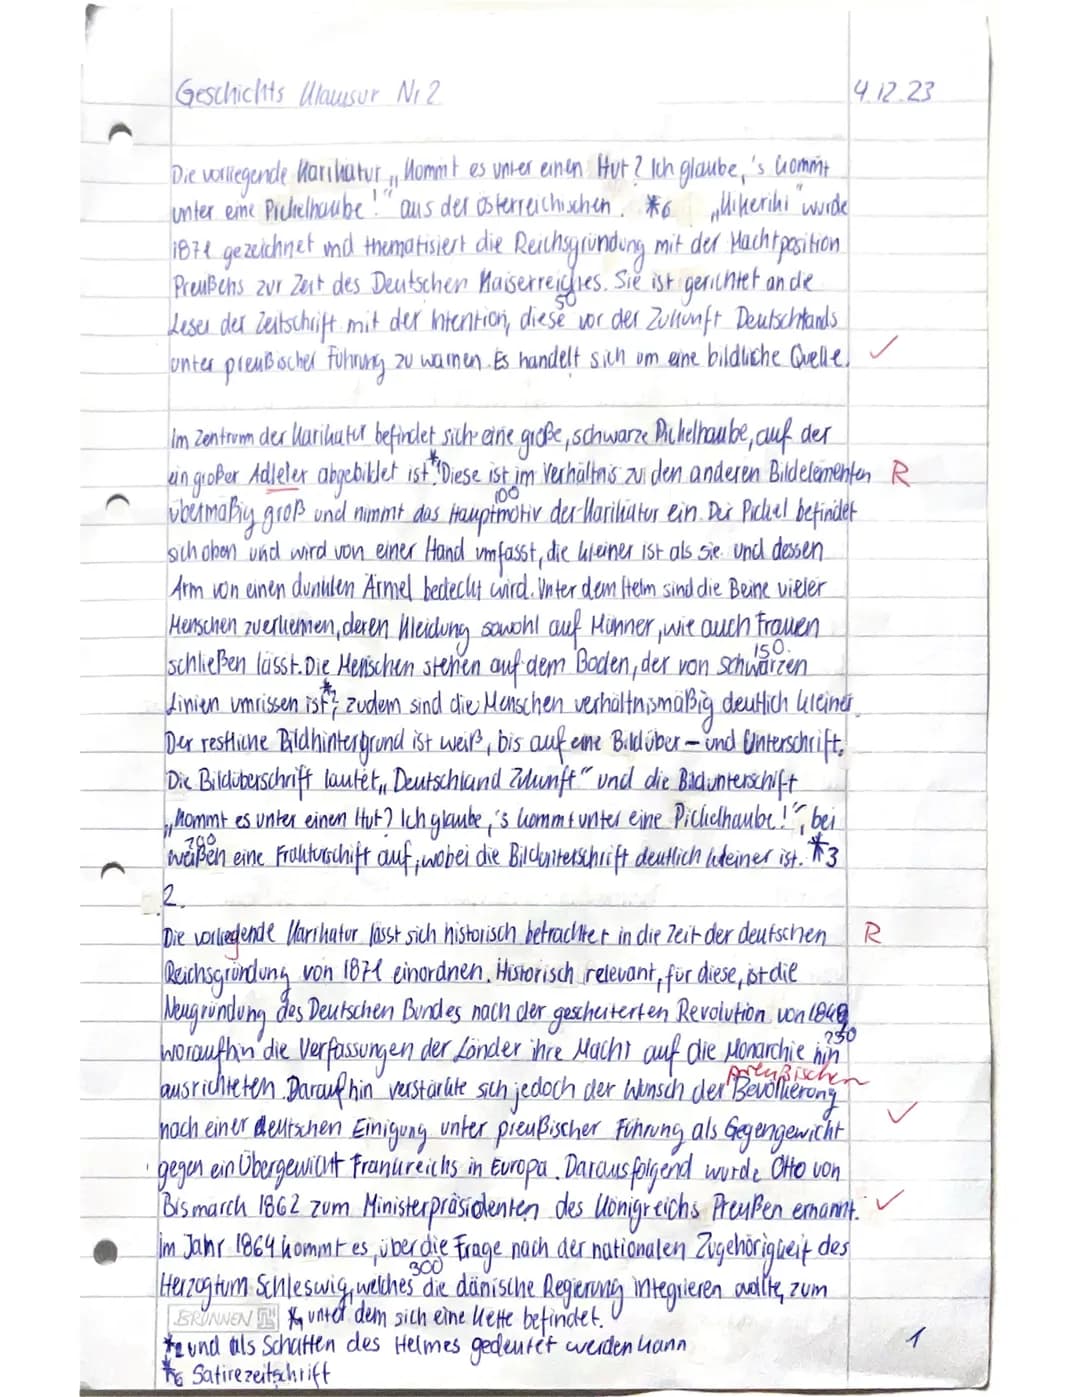 Geschichts Klausur Nr 2 4.12.23
Die vorliegende Karikatur „Kommt es unter einen Hut? Ich glaube,'s kommt
unter eine Pickelhaube!“ aus der österreichischen *6 „Kikeriki“ wurde
1871 gezeichnet und thematisiert die Reichsgründung mit der Machtposition
Preußens zur Zeit des Deutschen Kaiserreiches. Sie ist gerichtet an die
50
Leser der Zeitschrift mit der Intention, diese vor der Zukunft Deutschlands
unter preußischer Führung zu warnen. Es handelt sich um eine bildliche Quelle. ✓
Im Zentrum der Karikatur befindet sich eine große, schwarze Pickelhaube, auf der
ein großer Adleler abgebildet ist*1. Diese ist im Verhältnis zu den anderen Bildelementen R
100
übermäßig groß und nimmt das Hauptmotiv der Karikatur ein. Der Pickel befindet
sich oben und wird von einer Hand umfasst, die kleiner ist als sie und dessen
Arm von einen dunklen Ärmel bedeckt wird. Unter dem Helm sind die Beine vieler
Menschen zuerkennen, deren Kleidung sowohl auf Männer, wie auch Frauen
150
schließen lässt. Die Menschen stehen auf dem Boden, der von schwarzen
Linien umrissen ist*2, zudem sind die Menschen verhältnismäßig deutlich kleiner.
Der restliche Bildhintergrund ist weiß, bis auf eine Bildüber- und Unterschrift.
Die Bildüberschrift lautet „Deutschland Zukunft“ und die Bildunterschift
„Kommt es unter einen Hut? Ich glaube,'s kommt unter eine Pickelhaube!“, bei
200
weißen eine Frakturschift auf, wobei die Bildunterschrift deutlich kleiner ist. *3
2.
Die vorliegende Karikatur lässt sich historisch betrachtet in die Zeit der deutschen R
Reichsgründung von 1871 einordnen. Historisch relevant, für diese, ist die
Neugründung des Deutschen Bundes nach der gescheiterten Revolution von 1849
250
woraufhin die Verfassungen der Länder ihre Macht auf die Monarchie hin
preußischen
ausrichteten. Daraufhin verstärkte sich jedoch der Wunsch der Bevölkerung
nach einer deutschen Einigung unter preußischer Führung als Gegengewicht ✓
gegen ein Übergewicht Frankreichs in Europa. Darausfolgend wurde Otto von
Bismarck 1862 zum Ministerpräsidenten des Königreichs Preußen ernannt. ✓
Im Jahr 1864 kommt es, über die Frage nach der nationalen Zugehörigkeit des
300
Herzogtum Schleswig, welches die dänische Regierung integrieren wollte, zum
BRUNNEN *1 unter dem sich eine Kette befindet.
*2 und als Schatten des Helmes gedeutet werden kann 1
*6 Satirezeitschrift